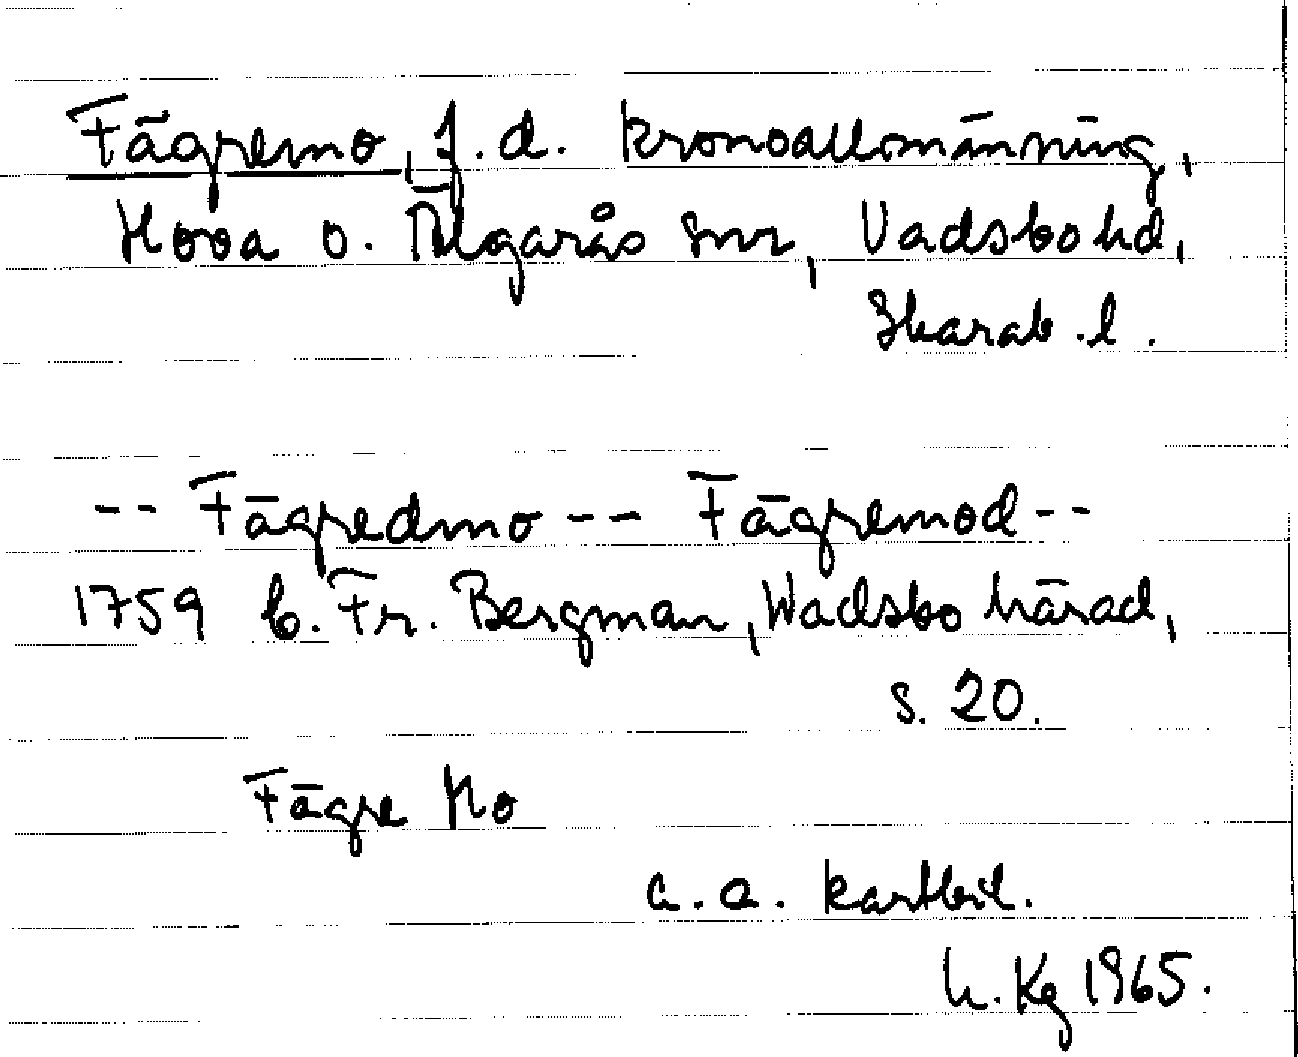 Fägremo, f.d. kronoallmänning,
Hova o. Älgarås snr, Vadsbo hd,
Skarab. l.
-- Fägredmo -- Fägremod --
1759 C. Fr. Bergman, Wadsbo härad,
s. 20.
Fägre Mo
a. a. kartbil.
h. Kg 1965.